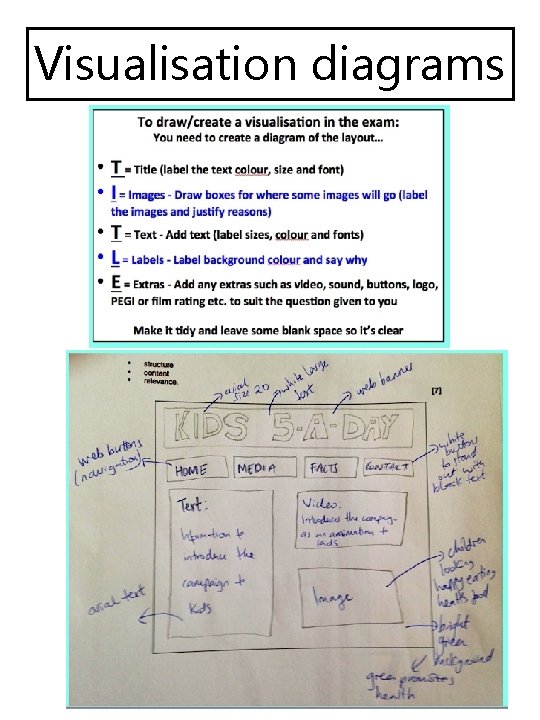 Visualisation diagrams
To draw/create a visualisation in the exam:
You need to create a diagram of the layout...
• T = Title (label the text colour, size and font)
• I = Images - Draw boxes for where some images will go (label
the images and justify reasons)
• T = Text - Add text (label sizes, colour and fonts)
• L = Labels - Label background colour and say why
• E = Extras - Add any extras such as video, sound, buttons, logo,
PEGI or film rating etc. to suit the question given to you
Make it tidy and leave some blank space so it's clear
• structure
• content
• relevance.
[7]
arial
size 20
white large
text
web banner
KIDS 5-A-DAY
web buttons
(navigation)
HOME
MEDIA
FACTS
CONTACT
white
button
to stand
out with
black text
Text:
Information to
introduce the
campaign to
kids
Video:
Introduces the campaig-
as an animation to
kids
Image
arial text
children
looking
happy eating
health food
bright
green
background
green promotes
health